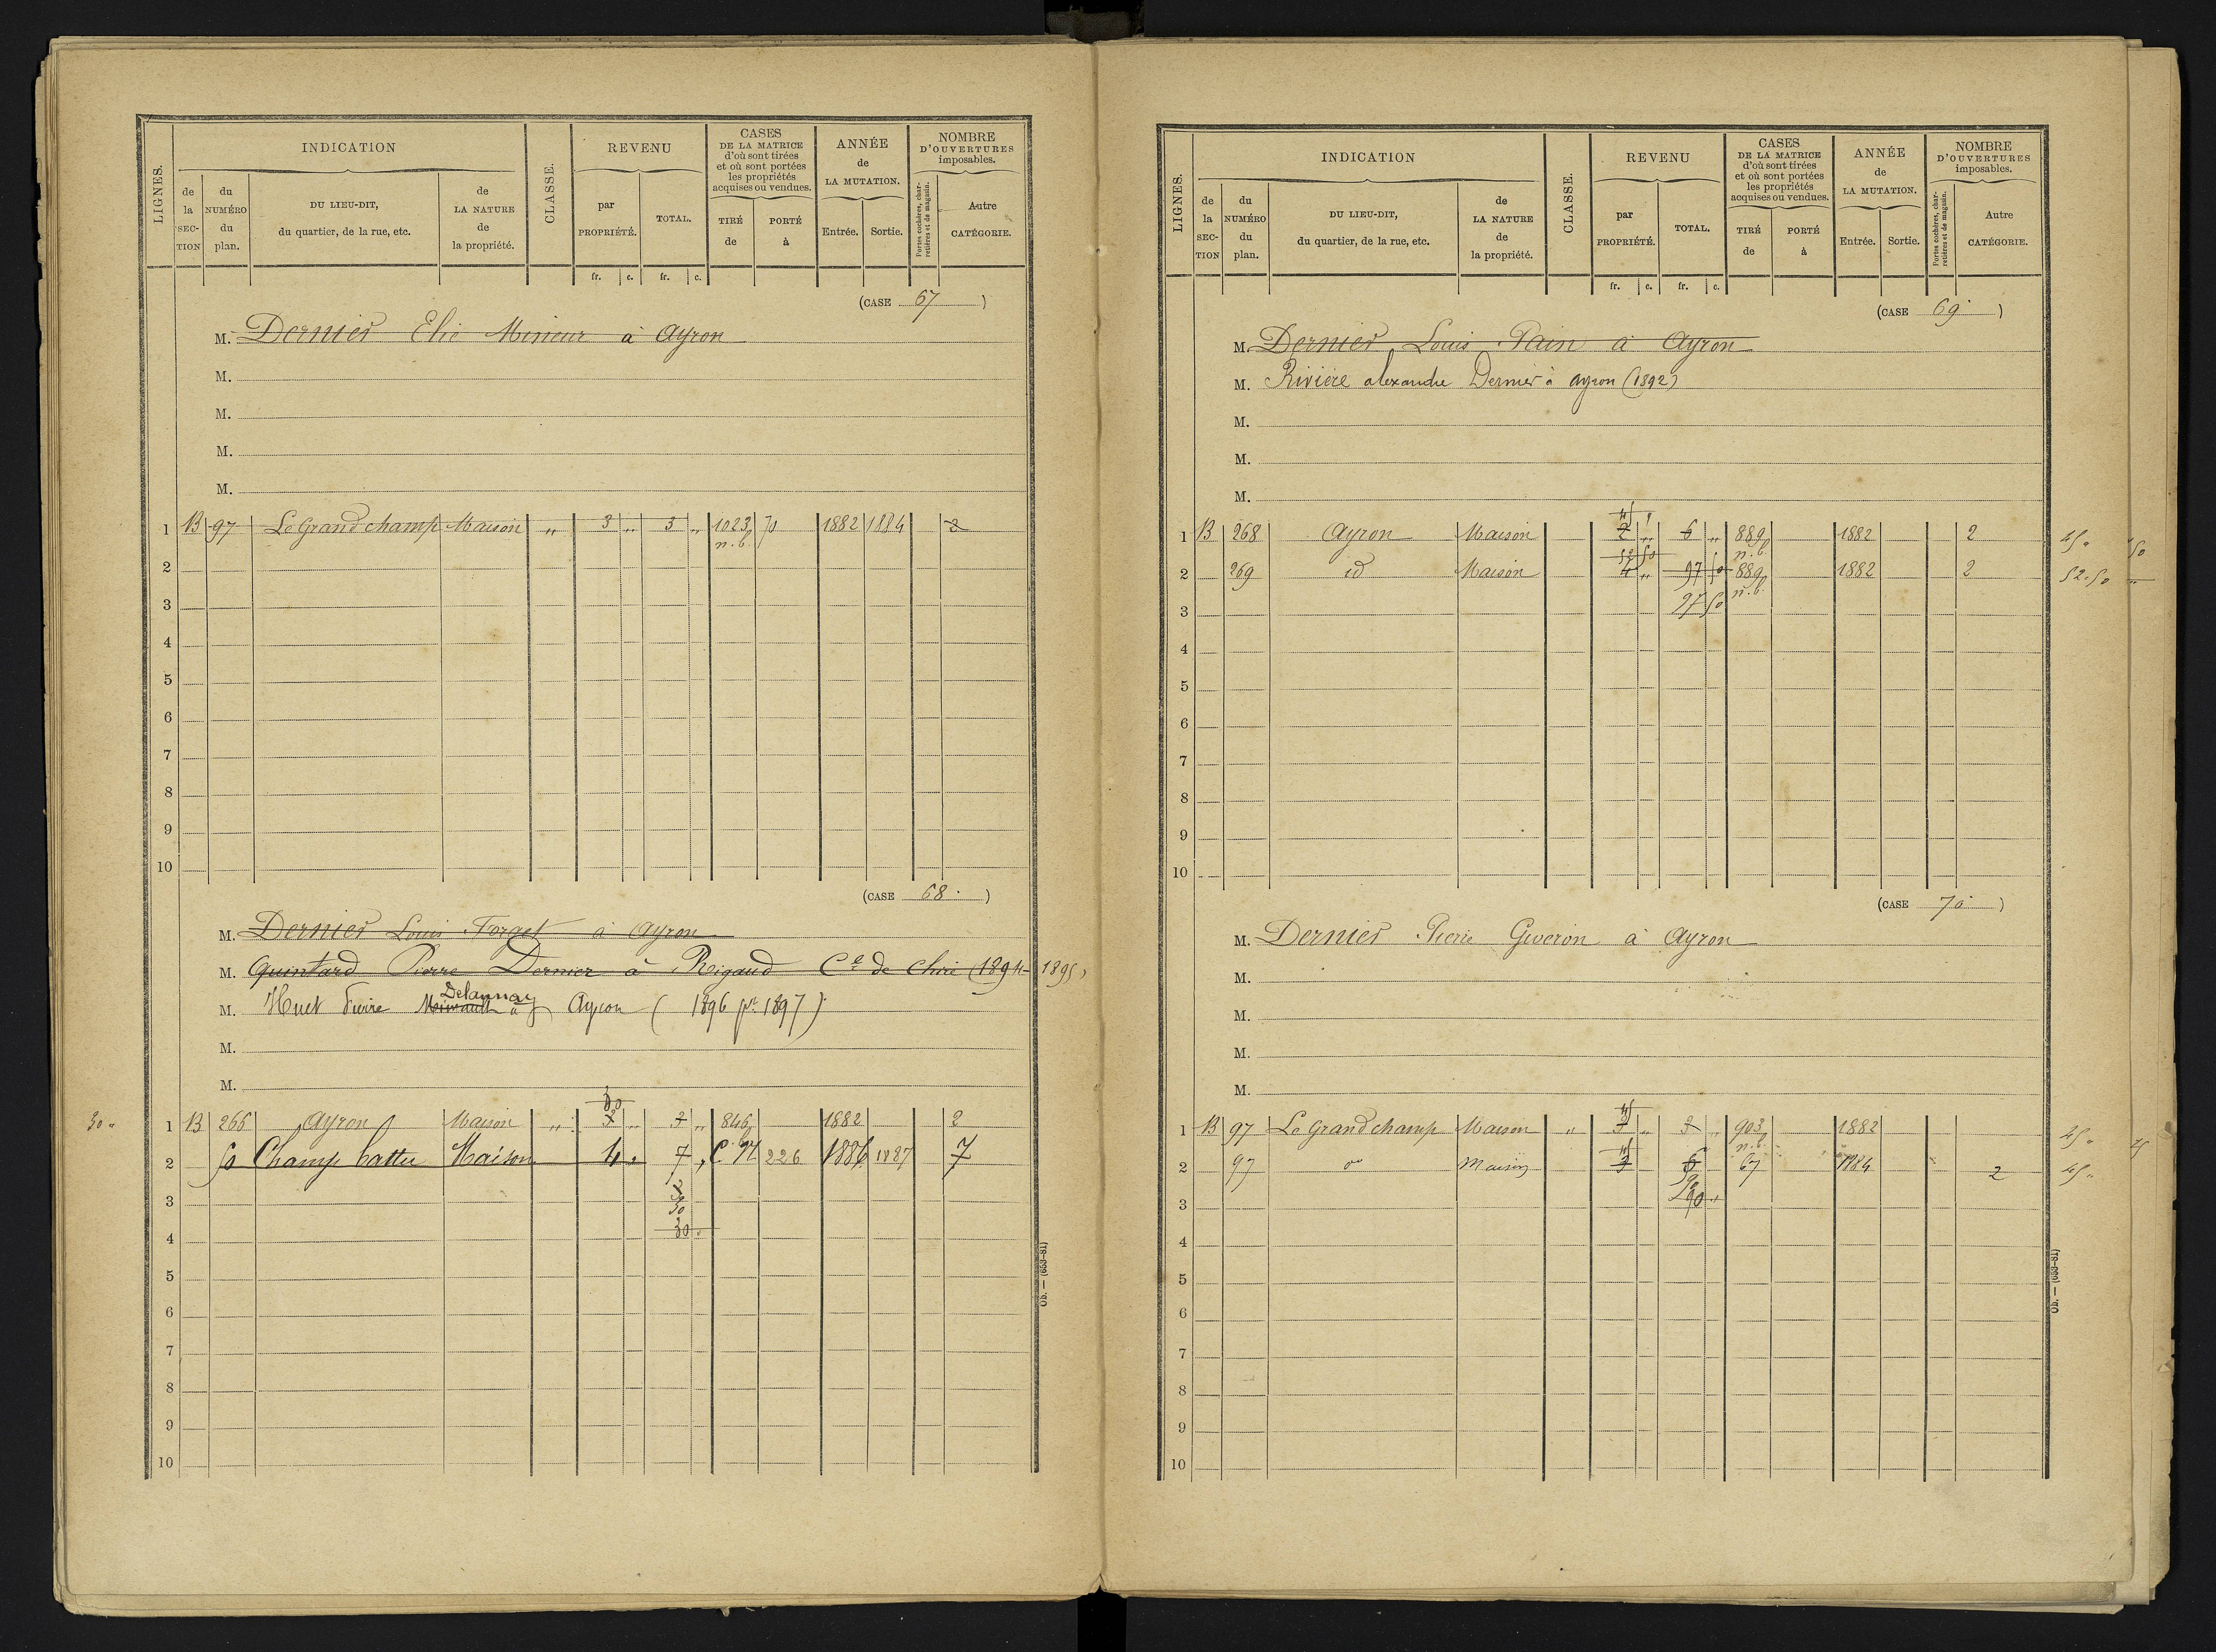 LIGNES.
INDICATION
CLASSE.
REVENU
CASES DE LA MATRICE d'où sont tirées et où sont portées les propriétés acquises ou vendues.
ANNÉE de LA MUTATION.
NOMBRE D'OUVERTURES imposables.
de la SEC-TION
du NUMÉRO du plan.
DU LIEU-DIT, du quartier, de la rue, etc.
de LA NATURE de la propriété.
par PROPRIÉTÉ.
TOTAL.
TIRÉ de
PORTÉ à
Entrée.
Sortie.
Portes cochères, charretières et de magasin.
Autre CATÉGORIE.
fr. c. fr. c.
(CASE 67)
M. Dernier Elie Mineur à Ayron
M.
M.
M.
M.
1 B 97 Le Grand champ Maison " 3 " 3 " 1023 70 1882 1884 2
n.b.
2
3
4
5
6
7
8
9
10
(CASE 68)
M. Dernier Louis Forget à Ayron
M. Quintard Pierre Dernier à Rigaud Cne de Chiré (1894-1895)
Delaunay
M. Huet Pierre à Ayron (1896 pr 1897)
M.
M.
30
30 " 1 B 266 Ayron Maison " 3 " 3 " 846 1882 2
2 50 Champ battu Maison 4 " 7 " C.N 226 1886 1887 7
3 3
30
4 30 "
5
6
7
8
9
10
Ob. — (653-81)
LIGNES.
INDICATION
CLASSE.
REVENU
CASES DE LA MATRICE d'où sont tirées et où sont portées les propriétés acquises ou vendues.
ANNÉE de LA MUTATION.
NOMBRE D'OUVERTURES imposables.
de la SEC-TION
du NUMÉRO du plan.
DU LIEU-DIT, du quartier, de la rue, etc.
de LA NATURE de la propriété.
par PROPRIÉTÉ.
TOTAL.
TIRÉ de
PORTÉ à
Entrée.
Sortie.
Portes cochères, charretières et de magasin.
Autre CATÉGORIE.
fr. c. fr. c.
(CASE 69)
M. Dernier Louis Pain à Ayron
M. Rivière alexandre Dernier à ayron (1892)
M.
M.
M.
45 "
1 B 268 Ayron Maison 2 " 6 " 889 1882 2 45 "
52 50 n.b.
2 269 id Maison 4 " 97 50 889 1882 2 52.50
3 97 50 n.b.
4
5
6
7
8
9
10
(CASE 70)
M. Dernier Pierre Giveron à Ayron
M.
M.
M.
M.
45
1 B 97 Le Grand champ Maison " 3 " 3 " 903 1882 45 "
45 n.b.
2 97 do Maison 3 6 67 1884 2 45 "
90
3 90 "
4
5
6
7
8
9
10
Ob. — (653-81)